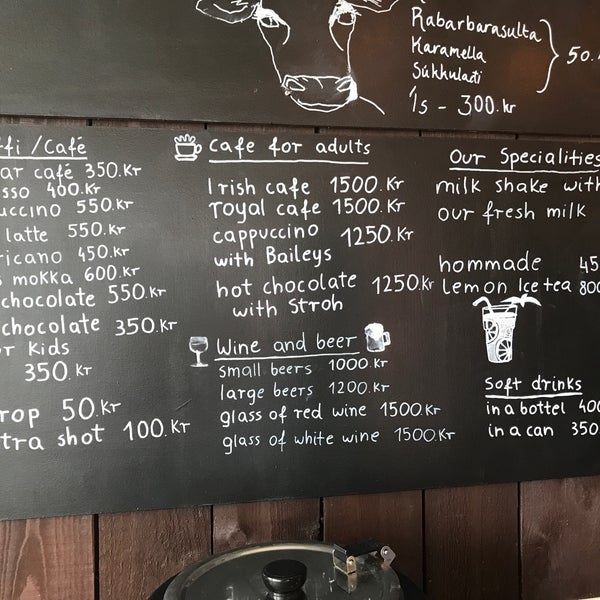 Rabarbarasulta
Karamella
Súkkulaði
50.
Ís - 300.kr
ffi /Café
ar café 350.Kr
sso 400.Kr
uccino 550.Kr
latte 550.Kr
ricano 450.Kr
mokka 600.Kr
chocolate 550.Kr
chocolate 350.Kr
or Kids
350.Kr
rop 50.Kr
tra shot 100.Kr
cafe for adults
Irish cafe 1500.Kr
royal cafe 1500.Kr
cappuccino 1250.Kr
with Baileys
hot chocolate 1250.Kr
with Stroh
Wine and beer
small beers 1000.Kr
large beers 1200.Kr
glass of red wine 1500.Kr
glass of white wine 1500.Kr
Our Specialities
milk shake with
our fresh milk
hommade 45
Lemon Ice tea 800
Soft drinks
in a bottel 400
in a can 350.